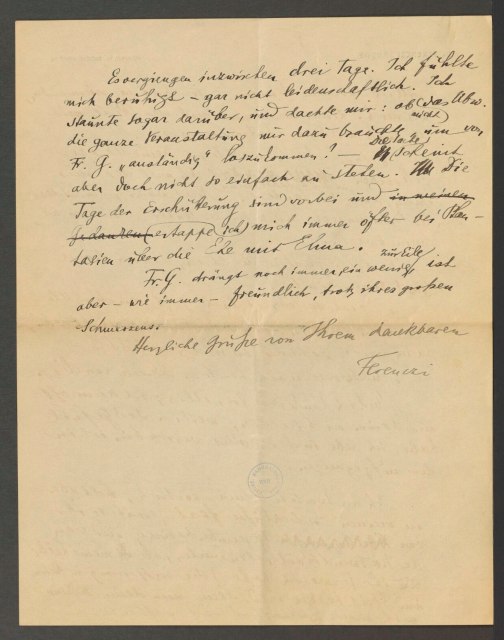 Es vergiengen inzwischen drei Tage. Ich fühlte
mich beruhigt – gar nicht leidenschaftlich. Ich
staunte sogar darüber, und dachte mir: ob das Ubw.
nicht
die ganze Veranstaltung nur dazu brauchte um von
Fr. G. „anständig" loszukommen? — Die Sache scheint
aber doch nicht so einfach zu stehen. Die
Tage der Erschütterung sind vorbei und in meinen
Gedanken (ertappe ich) mich immer öfter bei Phan-
tasien über die Ehe mit Elma.
zur Eile
Fr. G. drängt noch immer ein wenig, ist
aber – wie immer – freundlich, trotz ihres großen
Schmerzens.
Herzliche Grüße von Ihrem dankbaren
Ferenczi